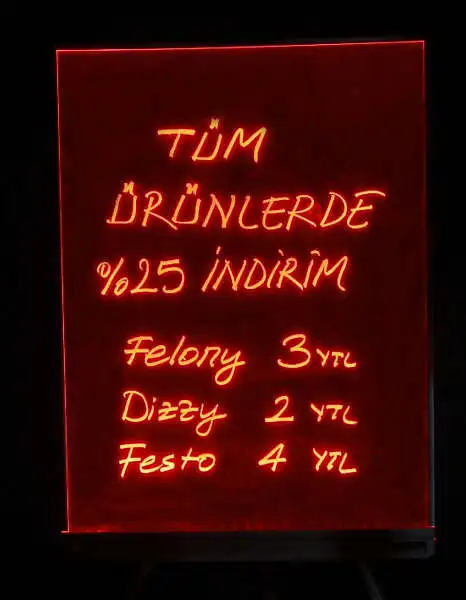 TÜM
ÜRÜNLERDE
%25 İNDİRİM
Felony 3 YTL
Dizzy 2 YTL
Festo 4 YTL